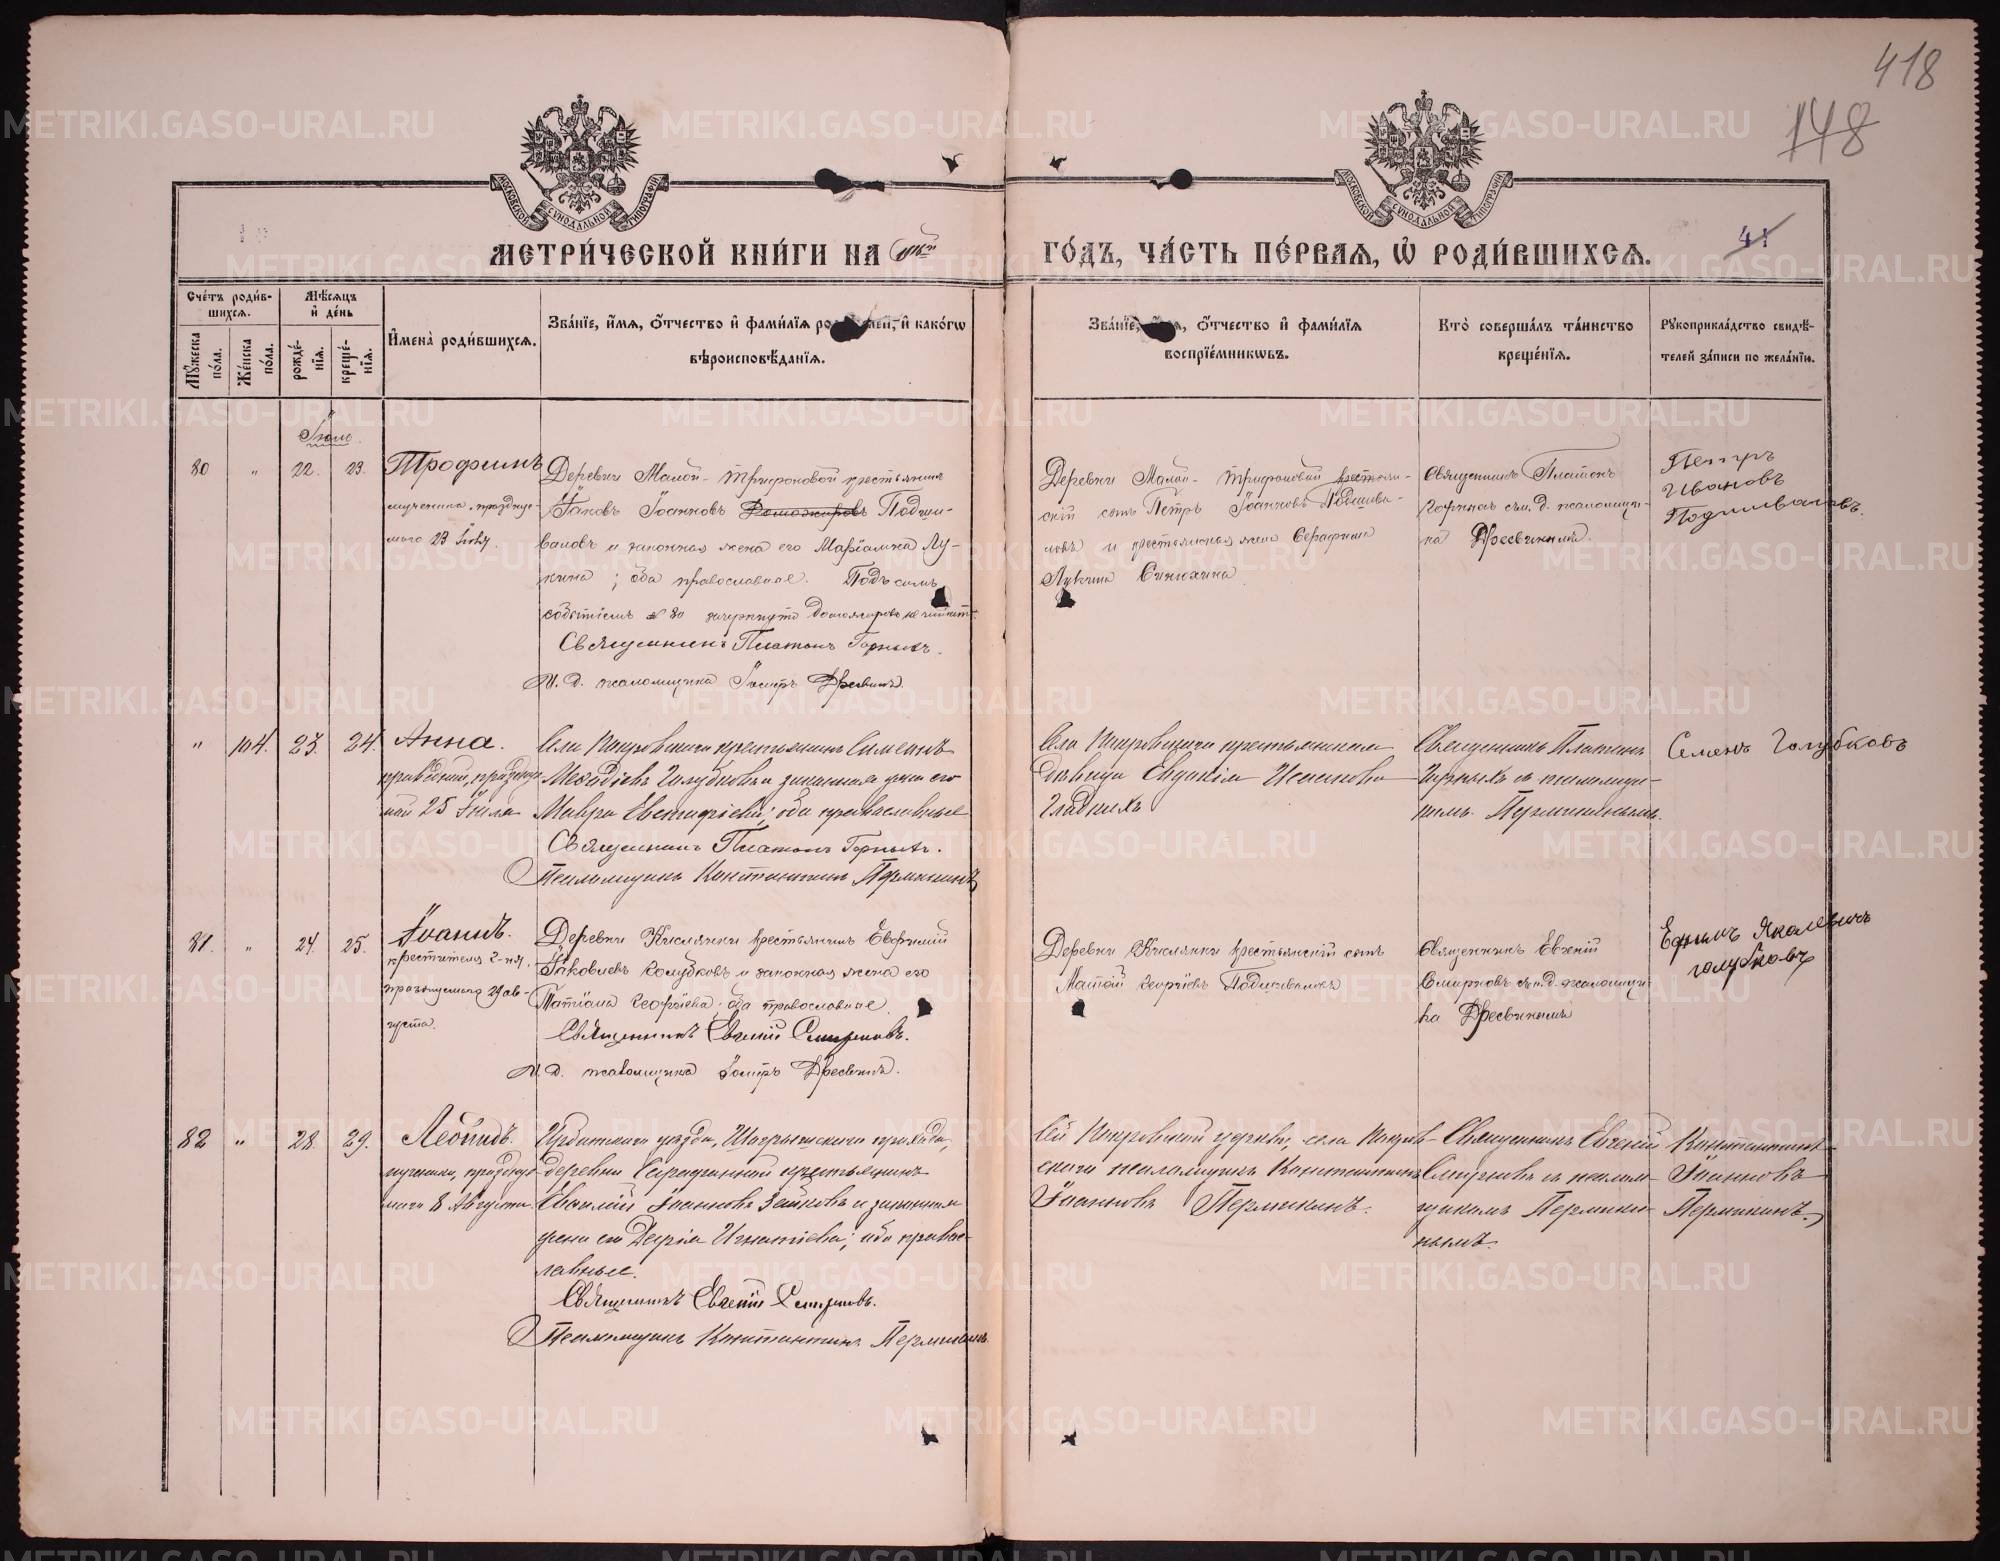 418
148
МОСКОВСКОЙ СѴНОДАЛЬНОЙ ТИПОГРАФІИ
МОСКОВСКОЙ СѴНОДАЛЬНОЙ ТИПОГРАФІИ
МЕТРИ́ЧЕСКОЙ КНИ́ГИ НА
ГО́ДЪ, ЧА́СТЬ ПЕ́РВАѦ, Ѽ РОДИ́ВШИХСѦ.
41
Сче́тъ роди́в-
шихсѧ.
Мѣ́сѧцъ
и҆ де́нь
Мꙋ́жеска по́ла.
Же́нска по́ла.
рожде́нїѧ.
креще́нїѧ.
И҆мена̀ роди́вшихсѧ.
Зва́нїе, и҆́мѧ, ѻ҆́тчество и҆ фами́лїѧ роди́телей, и҆ како́гѡ
вѣроисповѣ́данїѧ.
Зва́нїе, и҆́мѧ, ѻ҆́тчество и҆ фами́лїѧ
воспрїе́мникѡвъ.
Кто̀ соверша́лъ та́инство
креще́нїѧ.
Рꙋкоприкла́дство свидѣ́-
телей за́писи по жела́нїю.
Іюль.
80 " 22. 23.
Трофимъ
мученика, праздн
23 Іюля
Деревни Малой-Трифоновой крестьянинъ
Іаковъ Іоанновъ Подши-
валовъ и законная жена его Маріамна Лу-
кина; оба православные. Подъ симъ
событіемъ № 80 зачеркнуто не читать.
Священникъ Платонъ Горныхъ.
И. д. псаломщика Дресвинъ.
Деревни Малой-Трифоновой крестьян-
скій сынъ Петръ Іоанновъ Подшива-
ловъ и крестьянская жена Серафима
Лукина Синюхина
Священникъ Платонъ
Горныхъ съ и. д. псаломщи-
ка Дресвинымъ.
Петръ
Ивановъ
Подшиваловъ.
" 104. 23. 24.
Анна.
праведной, праздн
25 Іюля
Села Покровскаго крестьянинъ Симеонъ
Меѳодіевъ Голубковъ и законная жена его
Мавра Евстафіева; оба православные
Священникъ Платонъ Горныхъ.
Псаломщикъ Константинъ Пермикинъ
Села Покровскаго крестьянская
дѣвица Евдокія Исакова
Гладкихъ
Священникъ Платонъ
Горныхъ съ псаломщи-
комъ Пермикинымъ.
Семенъ Голубковъ
81. " 24. 25.
Іоаннъ.
крестителя
празднуемаго 29 ав-
густа.
Деревни Кислянки крестьянинъ Евфимій
Іаковлевъ Голубковъ и законная жена его
Татіана Георгіева; оба православные.
Священникъ Евгеній Смирновъ.
И. д. псаломщика Дресвинъ.
Деревни Кислянки крестьянскій сынъ
Георгіевъ Подшиваловъ
Священникъ Евгеній
Смирновъ съ и. д. псаломщи-
ка Дресвинымъ
Ефимъ Яковлевичъ
Голубковъ
82 " 28. 29.
Леонидъ.
мученика, праздну-
8 Августа.
Ирбитскаго уѣзда, Шогрышскаго прихода,
деревни крестьянинъ
Василій Іоанновъ Зайковъ и законная
жена его Дарія Игнатіева; оба правос-
лавные.
Священникъ Евгеній Смирновъ.
Псаломщикъ Константинъ Пермикинъ.
Сей Покровской церкви, села Покров-
скаго псаломщикъ Константинъ
Іоанновъ Пермикинъ.
Священникъ Евгеній
Смирновъ съ псалом-
щикомъ Пермики-
нымъ.
Константинъ
Іоанновъ
Пермикинъ.